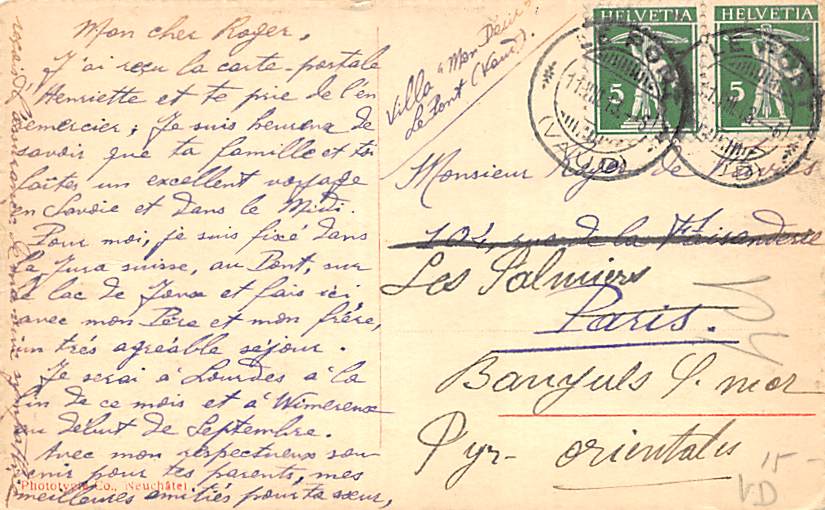 Mon cher Roger,
J'ai reçu la carte-postale
Henriette et te prie de l'en
remercier; Je suis heureux de
savoir que ta famille et toi
faites un excellent voyage
en Savoie et dans le Midi.
Pour moi, je suis fixé dans
le Jura suisse, au Pont, sur
le lac de Joux et fais ici,
avec mon Père et mon frère,
un trés agréable séjour.
Je serai à Lourdes à la
fin de ce mois et à Wimereux
au début de Septembre.
Avec mon respectueux sou-
venir pour tes parents, mes
meilleures amitiés pour ta sœur,
Phototypie Co., Neuchâtel
Villa "Mon Désir"
Le Pont (Vaud).
HELVETIA
5
HELVETIA
5
LE PONT
(VAUD)
LE PONT
Monsieur Roger de
104, rue de la Faisanderie
Les Palmiers
Paris.
Banyuls S. mer
Pyr- orientales
15 -
VD